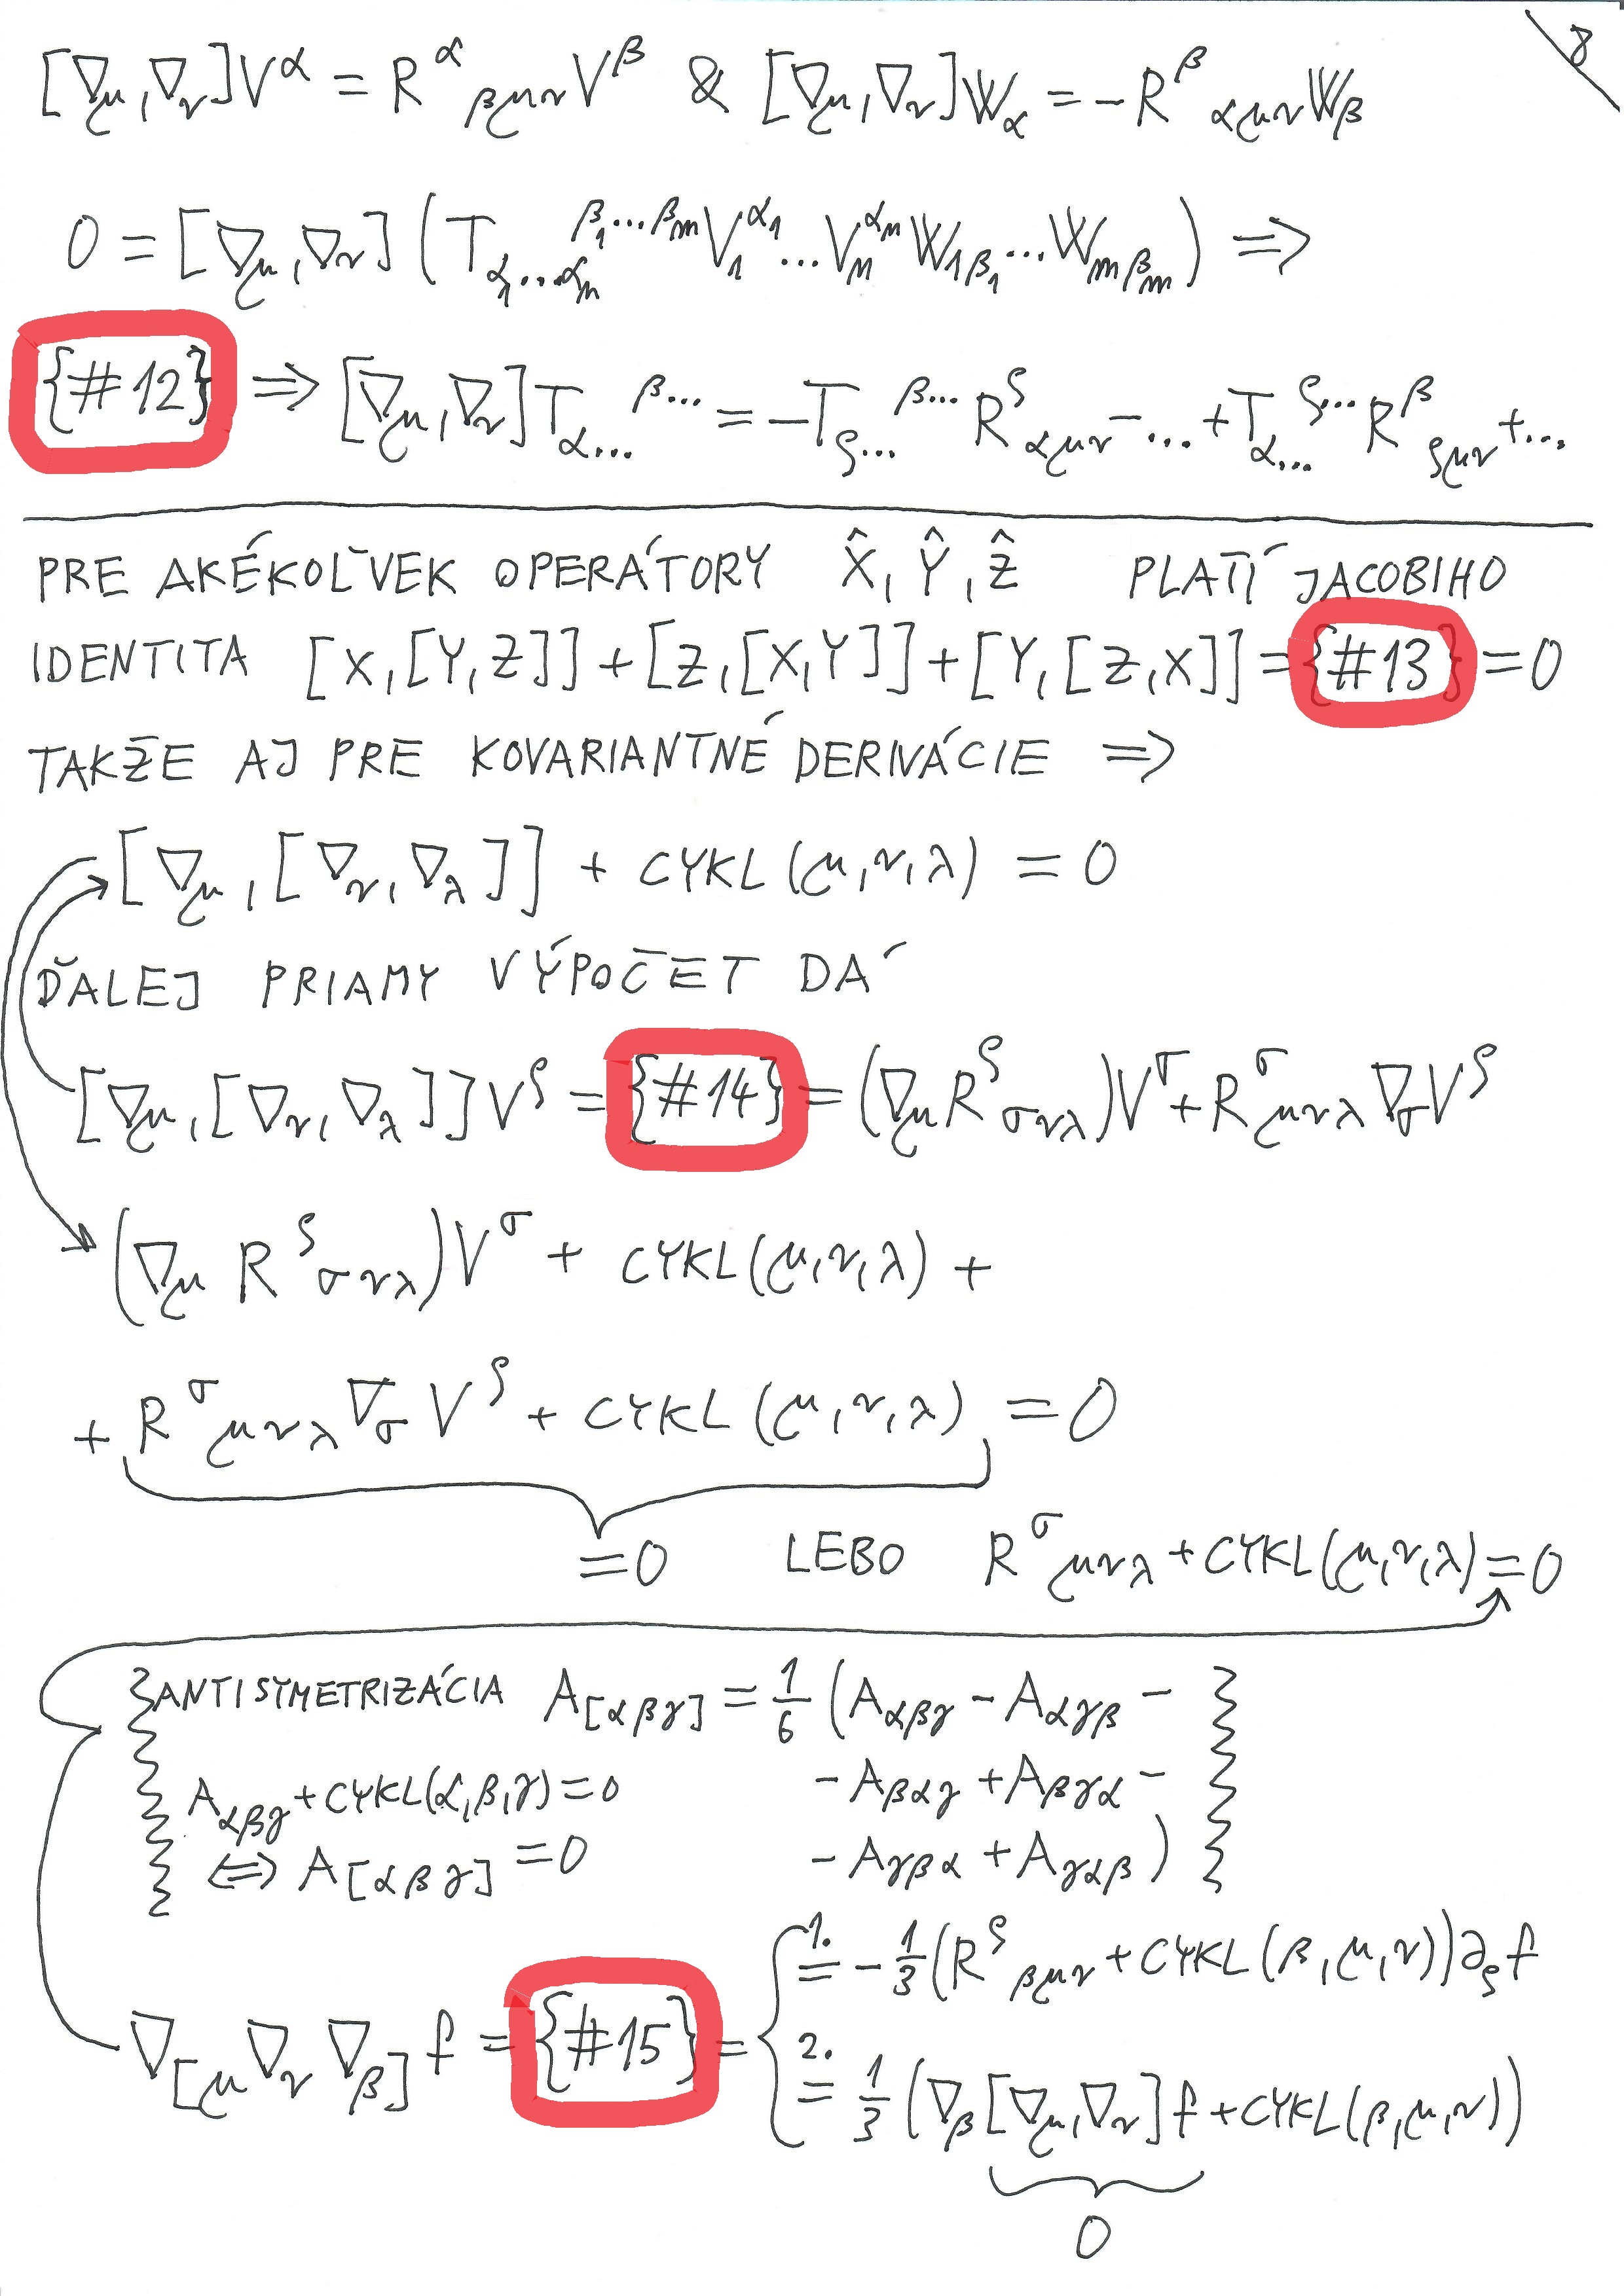 8
[∇μ,∇ν]V^α = R^α_βμν V^β & [∇μ,∇ν]W_α = -R^β_αμν W_β
0 = [∇μ,∇ν](T_α₁...αₙ^β₁...βₘ V₁^α₁...Vₙ^αₙ W₁β₁...Wₘβₘ) ⇒
{#12} ⇒ [∇μ,∇ν]T_α...^β... = -T_ρ...^β... R^ρ_αμν -... +T_α...^ρ... R^β_ρμν +...
PRE AKÉKOĽVEK OPERÁTORY X̂, Ŷ, Ẑ PLATÍ JACOBIHO
IDENTITA [X,[Y,Z]]+[Z,[X,Y]]+[Y,[Z,X]] = {#13} = 0
TAKŽE AJ PRE KOVARIANTNÉ DERIVÁCIE ⇒
[∇μ,[∇ν,∇λ]] + CYKL(μ,ν,λ) = 0
ĎALEJ PRIAMY VÝPOČET DÁ
[∇μ,[∇ν,∇λ]]V^ρ = {#14} = (∇μ R^ρ_σνλ)V^σ + R^σ_μνλ ∇σ V^ρ
(∇μ R^ρ_σνλ)V^σ + CYKL(μ,ν,λ) +
+ R^σ_μνλ ∇σ V^ρ + CYKL(μ,ν,λ) = 0
= 0 LEBO R^σ_μνλ + CYKL(μ,ν,λ) = 0
ANTISYMETRIZÁCIA A_[αβγ] = 1/6 (A_αβγ - A_αγβ -
A_αβγ + CYKL(α,β,γ) = 0 - A_βαγ + A_βγα -
⇔ A_[αβγ] = 0 - A_γβα + A_γαβ)
1. = -1/3 (R^ρ_βμν + CYKL(β,μ,ν))∂ρ f
∇[μ ∇ν ∇β] f = {#15} =
2. = 1/3 (∇β[∇μ,∇ν]f + CYKL(β,μ,ν))
0